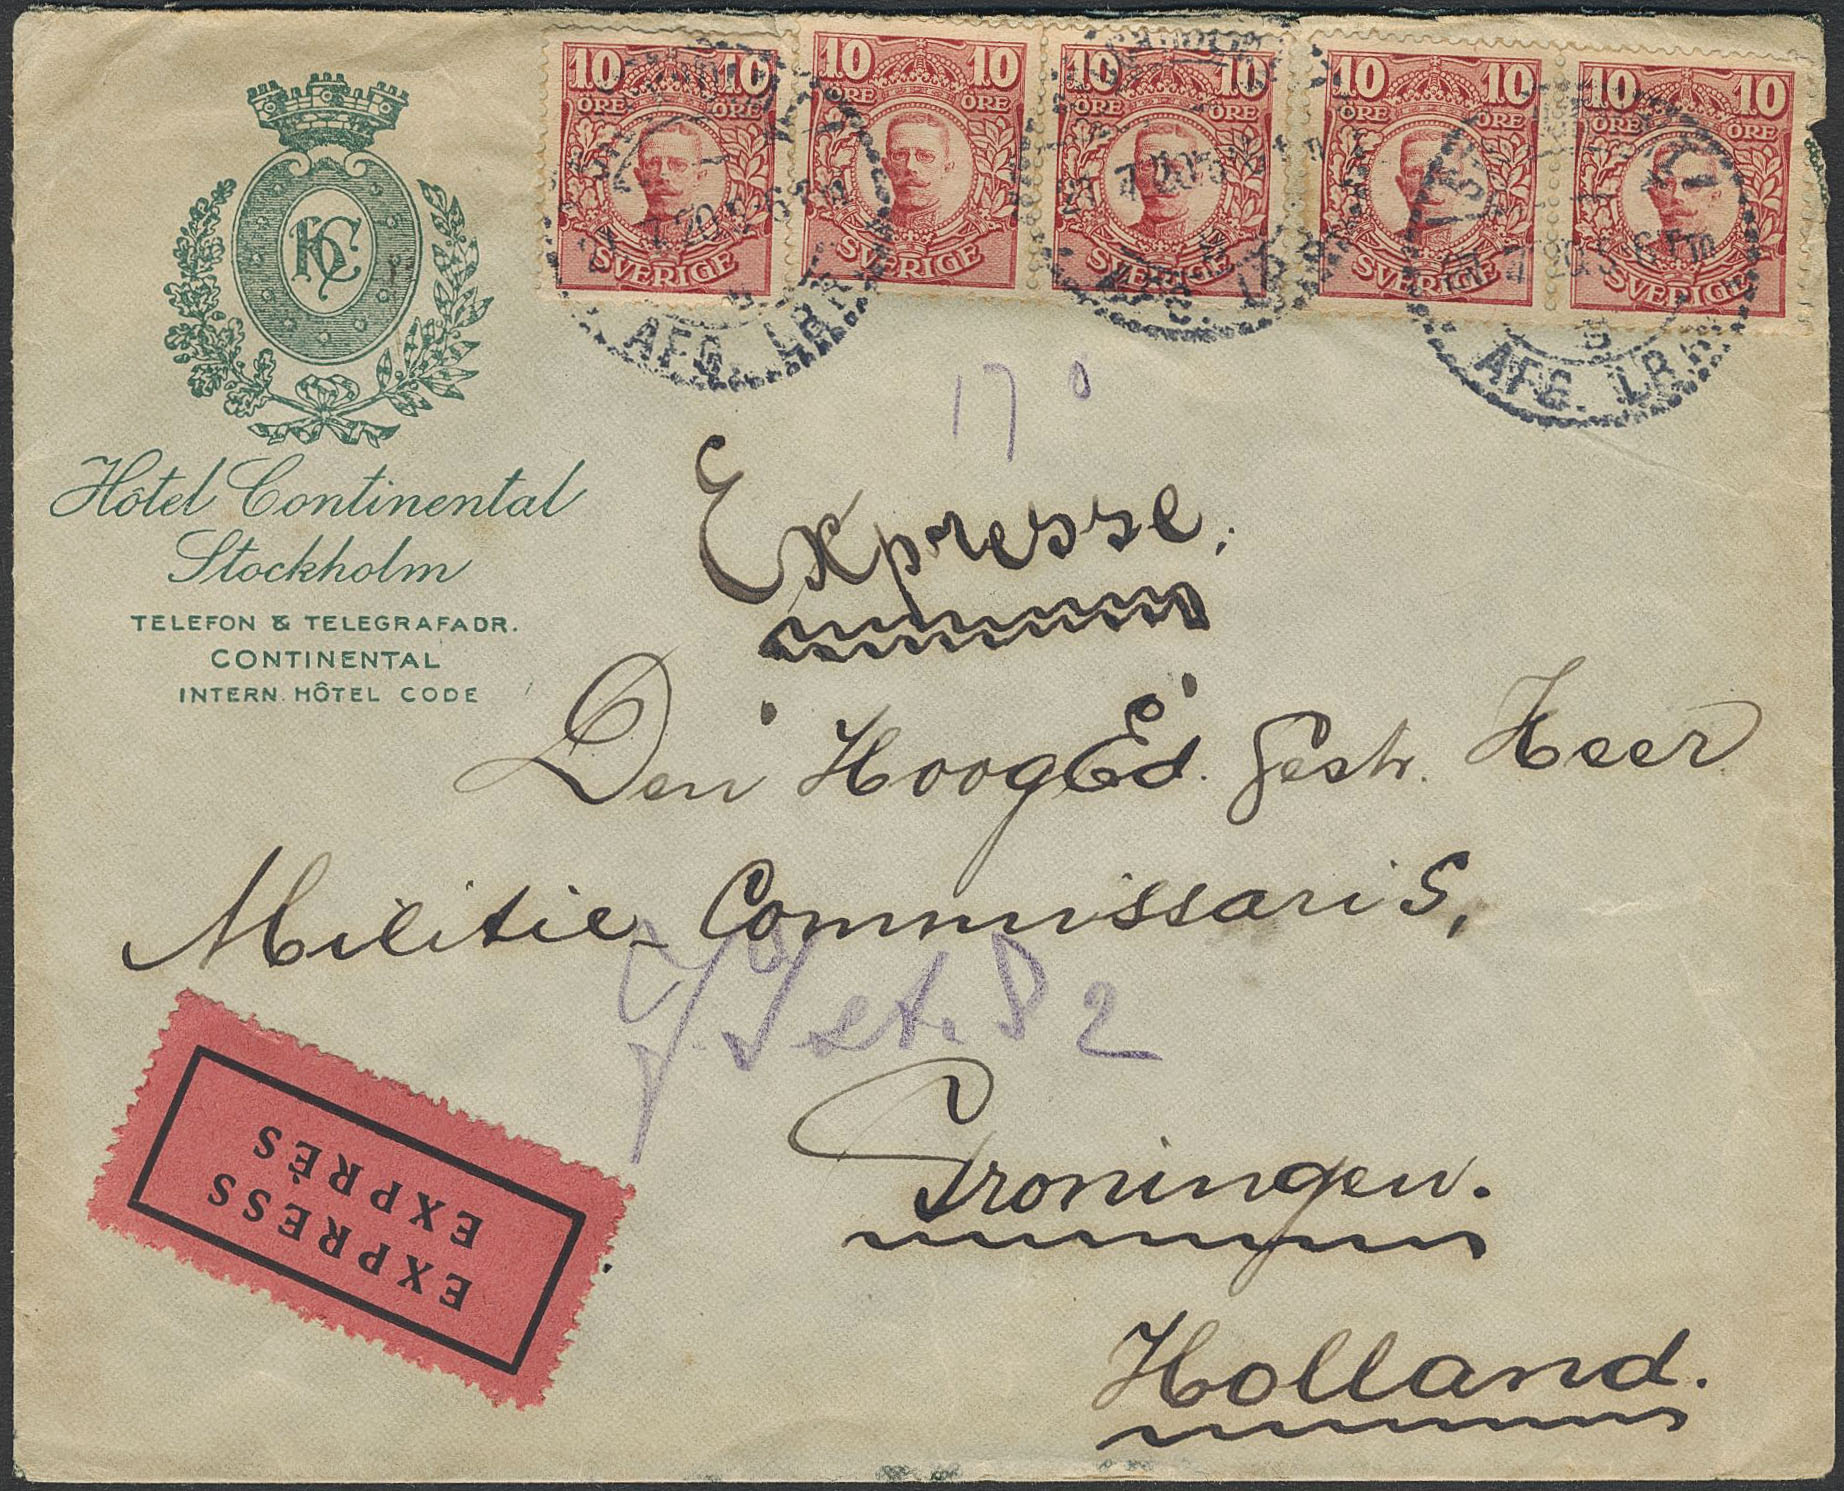 10 10
ÖRE ÖRE
SVERIGE
10 10
ÖRE ÖRE
SVERIGE
10 10
ÖRE ÖRE
SVERIGE
10 10
ÖRE ÖRE
SVERIGE
10 10
ÖRE ÖRE
SVERIGE
AFG. LBR
AFG. LBR
AFG. LBR
HC
Hôtel Continental
Stockholm
TELEFON & TELEGRAFADR.
CONTINENTAL
INTERN. HÔTEL CODE
17
Expresse.
Den HoogEd. Gestr. Heer
Militie-Commissaris,
82
Groningen.
Holland.
EXPRESS
EXPRÈS